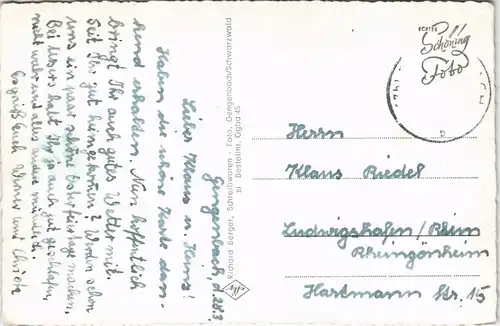 Gengenbach, d. 28.3.
Lieber Klaus u. Hans!
Haben die schöne Karte dan-
kend erhalten. Nun hoffentlich
bringt Ihr auch gutes Wetter mit.
Seid Ihr gut heimgekommen? Werden schon
uns ein paar schöne Osterfeiertage machen.
Bei uns habt Ihr ja auch gut geschlafen,
nicht wahr und alles andere mündlich.
Es grüßt Euch Werner und Christa
Richard Berger, Schreibwaren - Foto, Gengenbach/Schwarzwald
Bestellnr. Ggba 45
Agfa
ECHTES
Schöning
Foto
Herrn
Klaus Riedel
Ludwigshafen/Rhein
Rheingönheim
Hartmann Str. 15